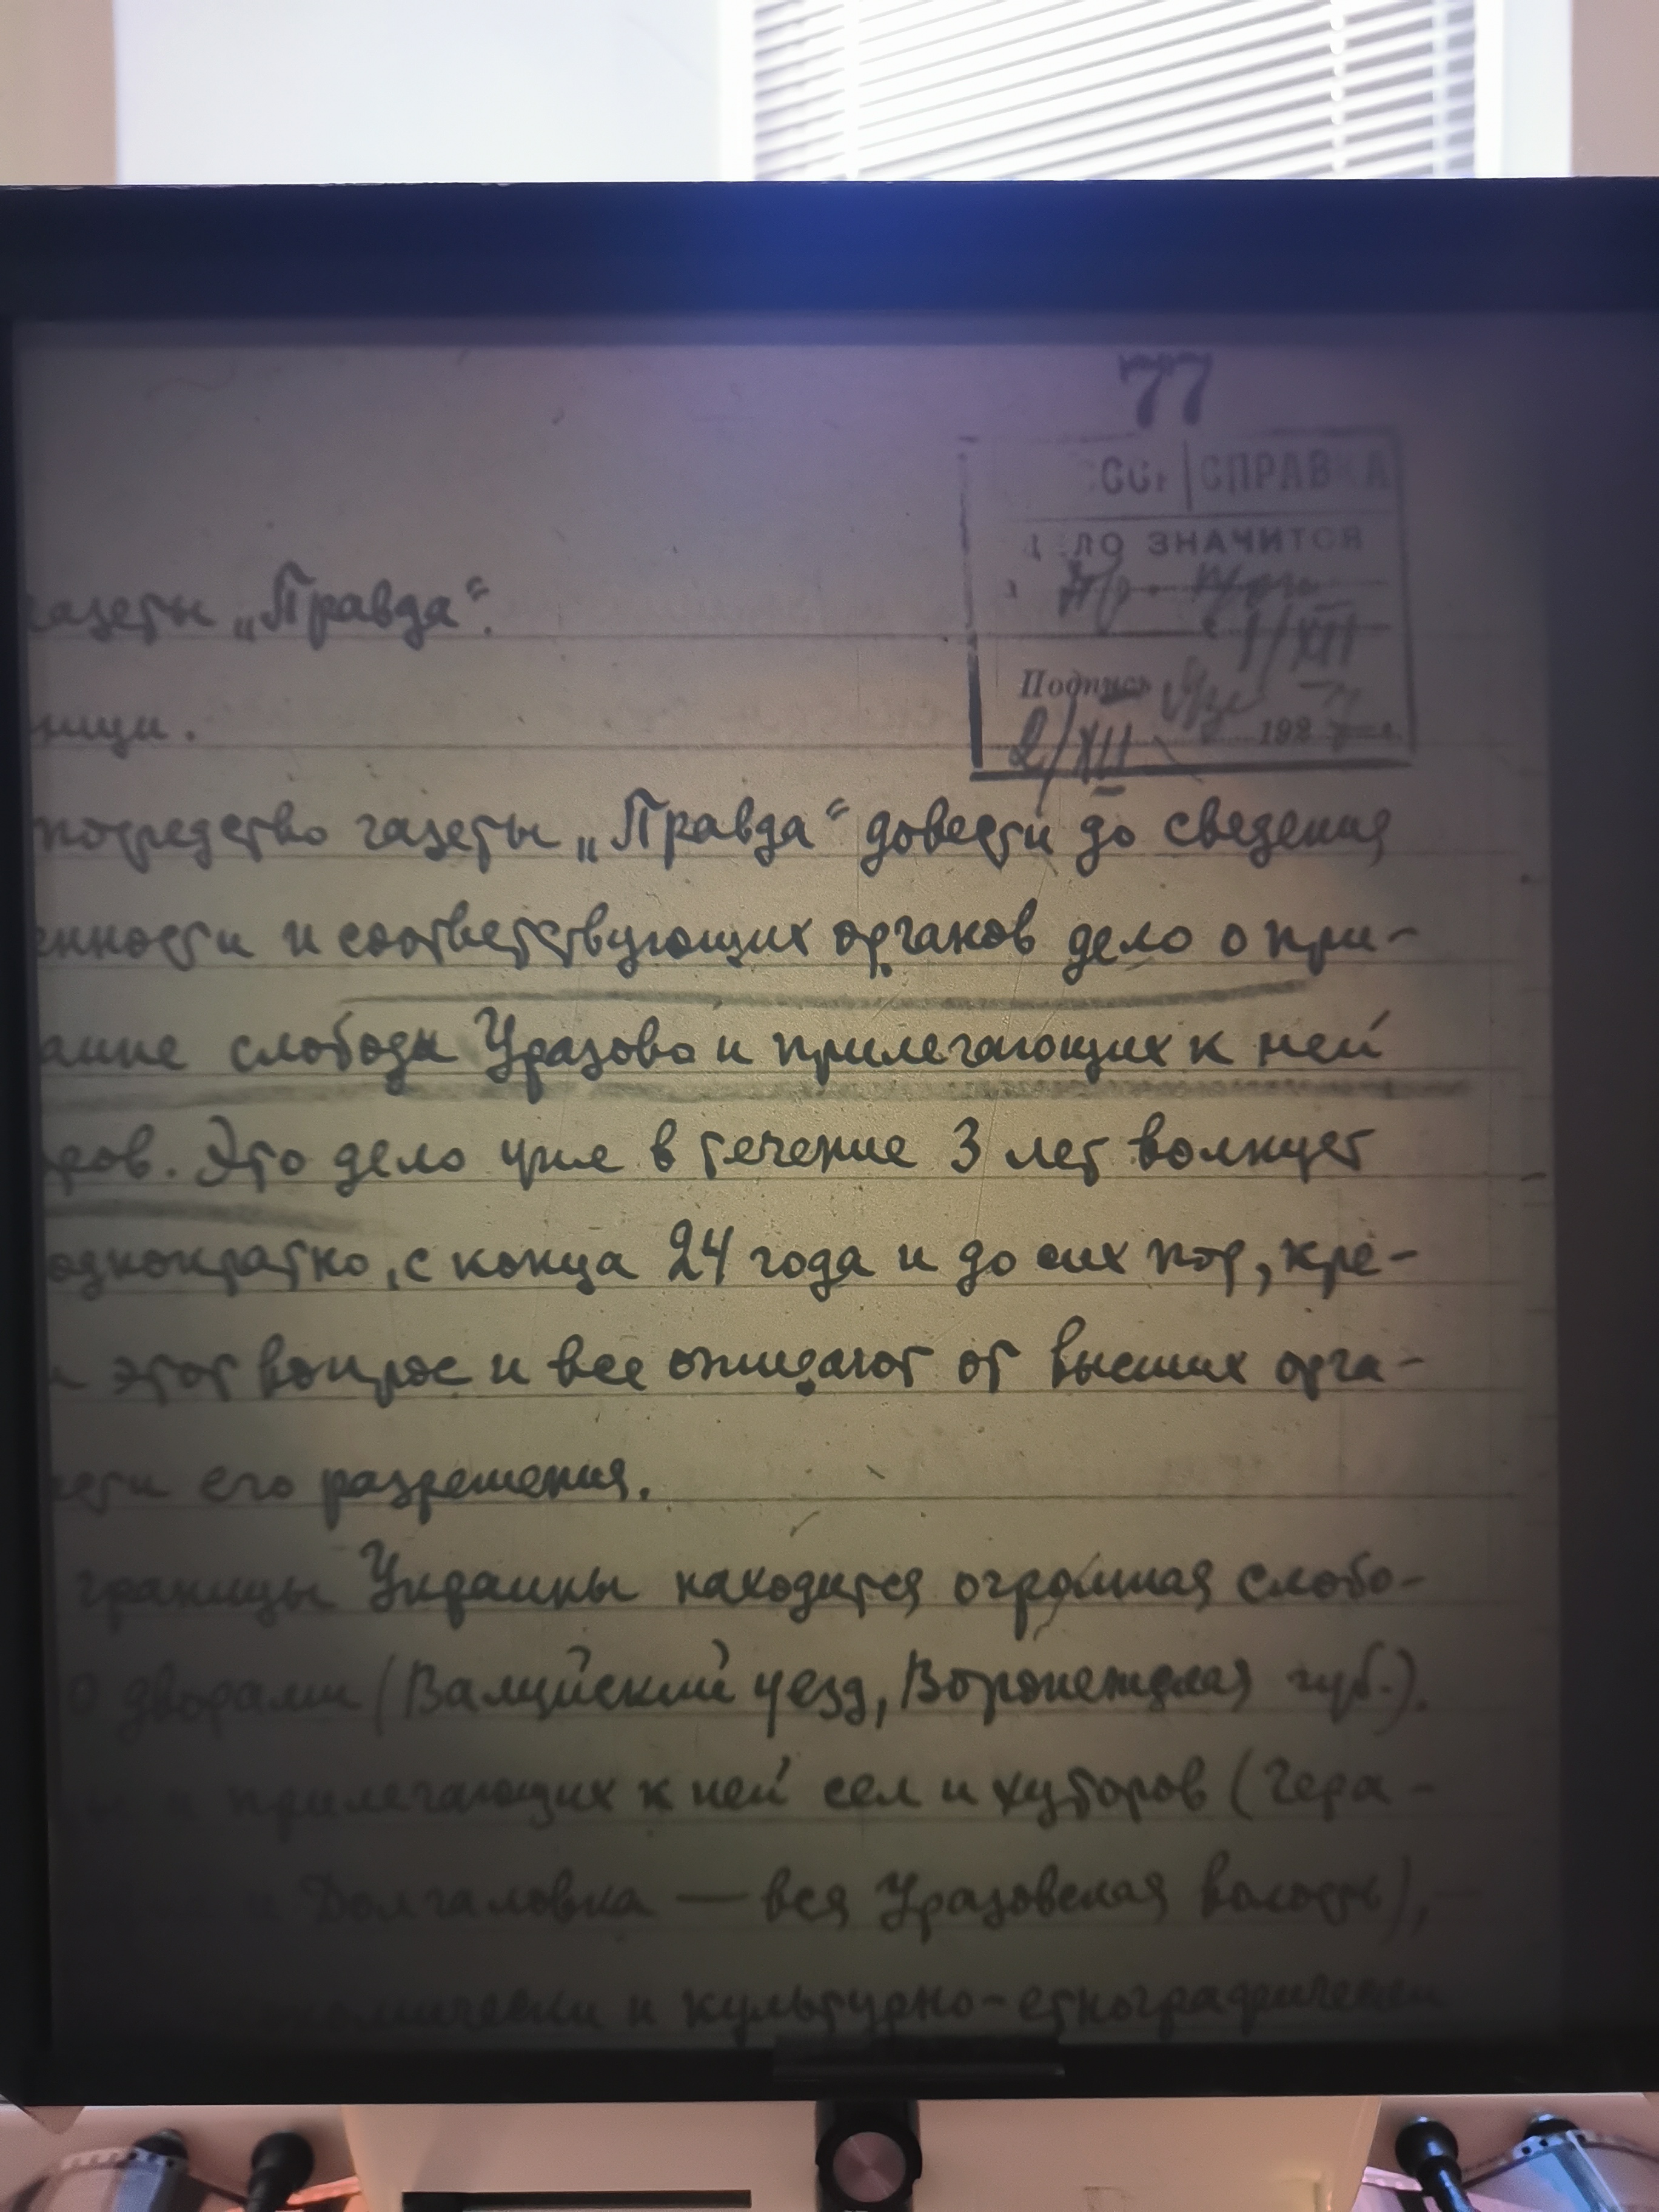 77
СПРАВКА
ЗНАЧИТСЯ
1/XII
Подпись
2/XII 192
газеты „Правда“.
ници.
посредство газеты „Правда“ довести до сведения
енности и соответствующих органов дело о при-
слободы Уразово и прилегающих к ней
ров. Это дело уже в течение 3 лет волнует
однократно, с конца 24 года и до сих пор, кре-
этот вопрос и все ожидают от высших орга-
его разрешения.
границы Украины находится огромная слобо-
дворами (Валуйский уезд, Воронежская губ.).
и прилегающих к ней сел и хуторов (Гера-
и Долгаловка — вся Уразовская волость),
и культурно-етнографически